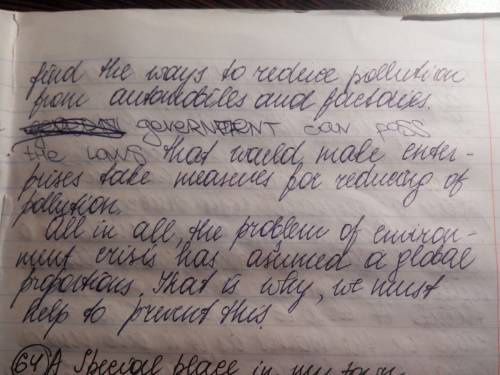 find the ways to reduce pollution
from automobiles and factories.
government can pass
the laws that would make enter-
prises take measures for reducing of
pollution.
All in all, the problem of environ-
ment crisis has assumed a global
proportions. That is why, we must
help to prevent this.
64) A Special place in my town.